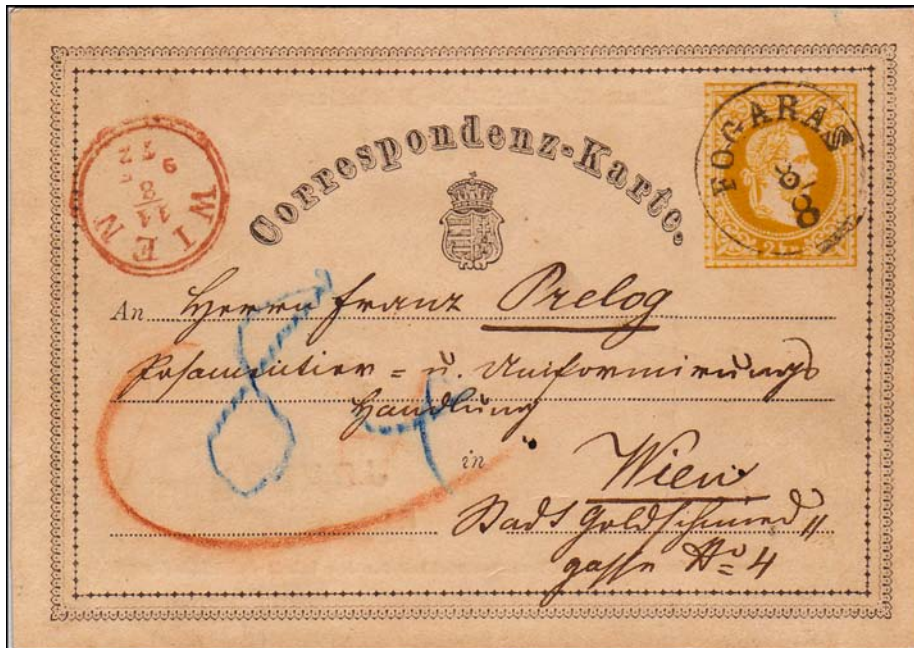 Correspondenz-Karte.
FOGARAS
8/8
2 kr
WIEN
11
8
9
72
An Herrn Franz Prelog
Posamentier = u. Uniformirungs
Handlung
in Wien
Stadt Goldschmied"
gasse No 4
8
4